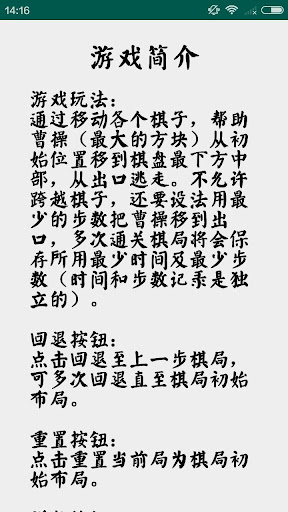 14:16
游戏简介
游戏玩法：
通过移动各个棋子，帮助
曹操（最大的方块）从初
始位置移到棋盘最下方中
部，从出口逃走。不允许
跨越棋子，还要设法用最
少的步数把曹操移到出
口，多次通关棋局将会保
存所用最少时间及最少步
数（时间和步数记录是独
立的）。
回退按钮：
点击回退至上一步棋局，
可多次回退直至棋局初始
布局。
重置按钮：
点击重置当前局为棋局初
始布局。